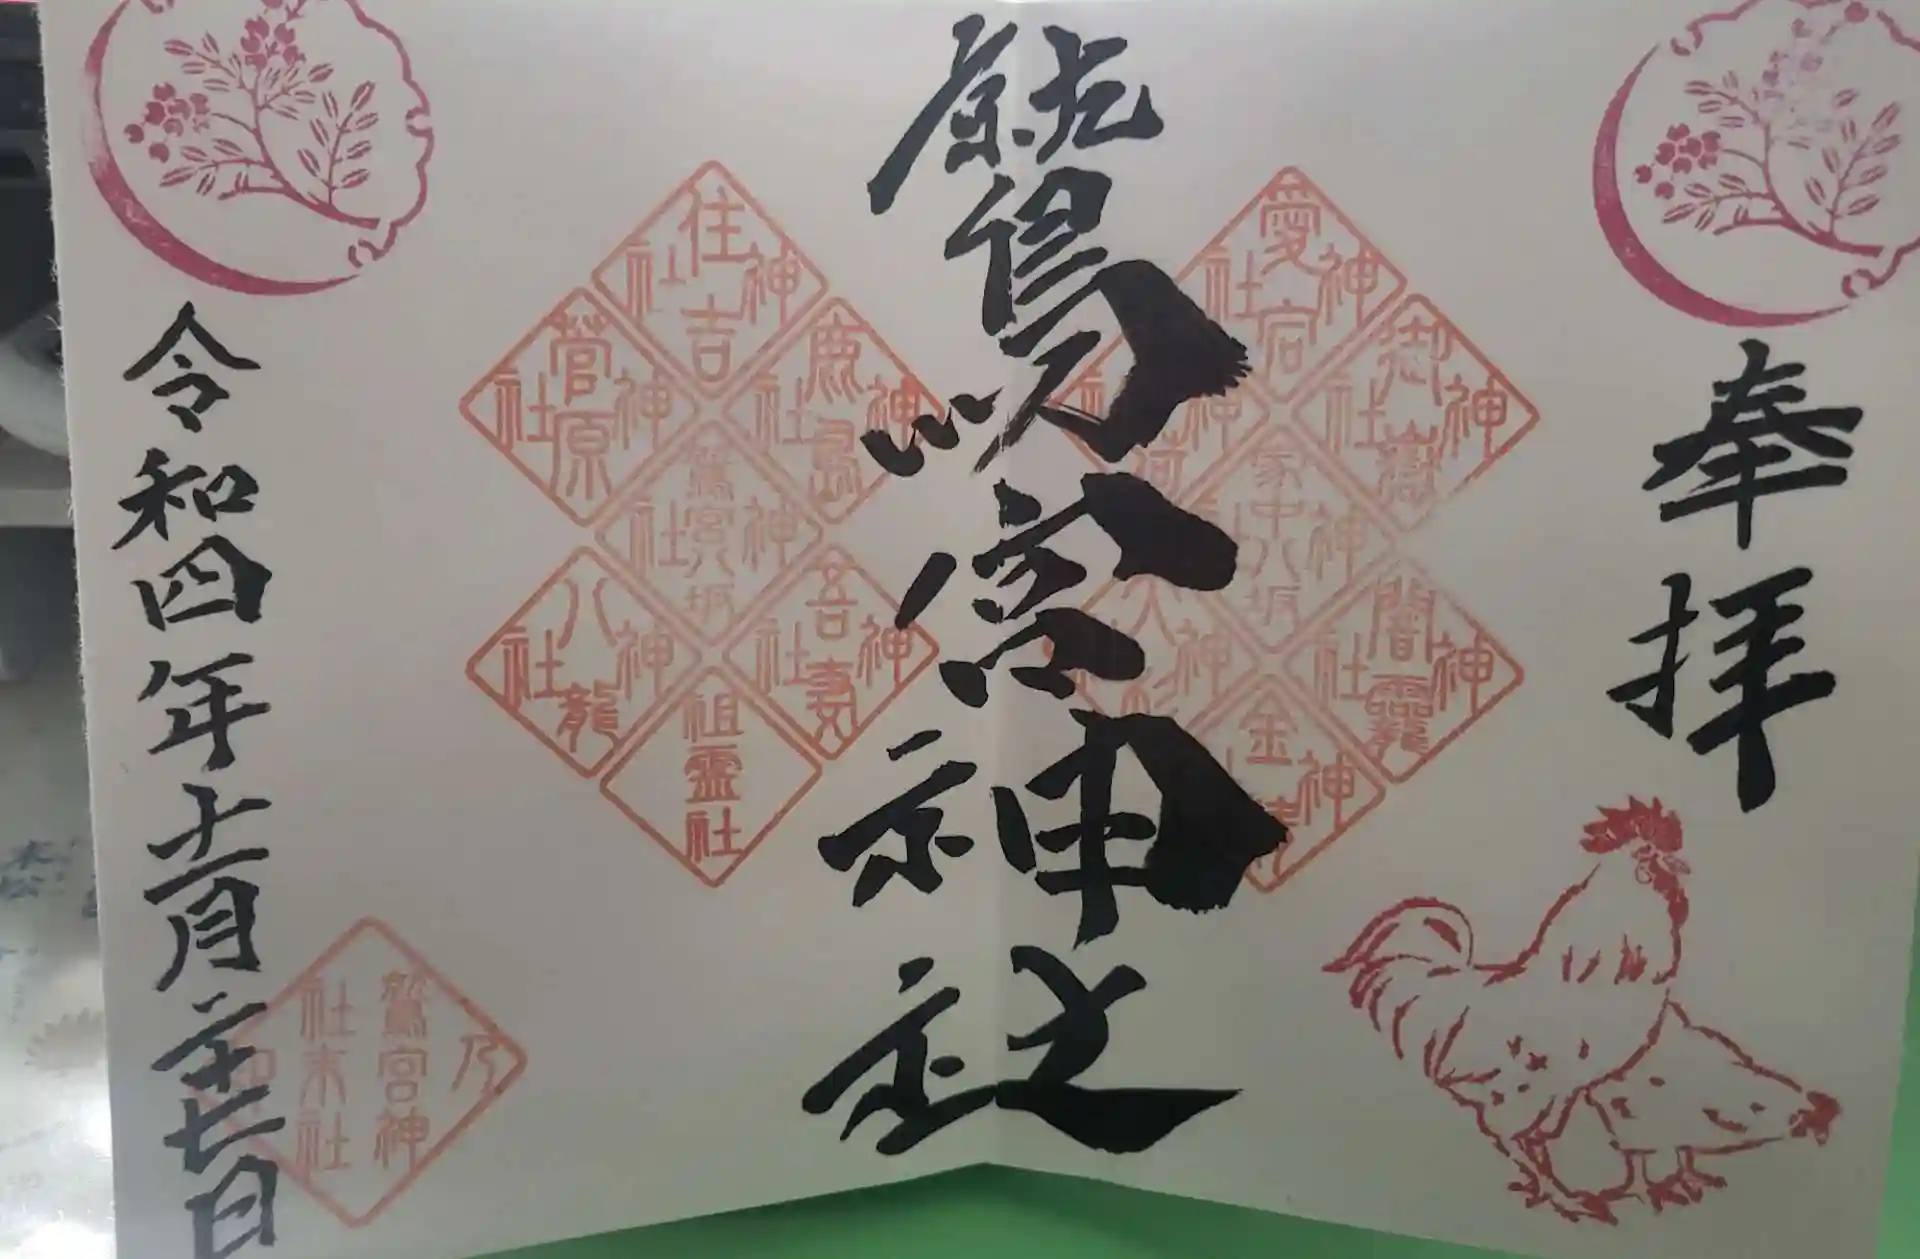 奉拝
鷲宮神社
愛宕神社
御嶽神社
家中八坂神社
闇龗神社
大杉神社
住吉神社
鹿島神社
菅原神社
鷲宮八坂神社
吾妻神社
八龍神社
祖霊社
令和四年十二月二十七日
鷲宮神
社末社
乃印